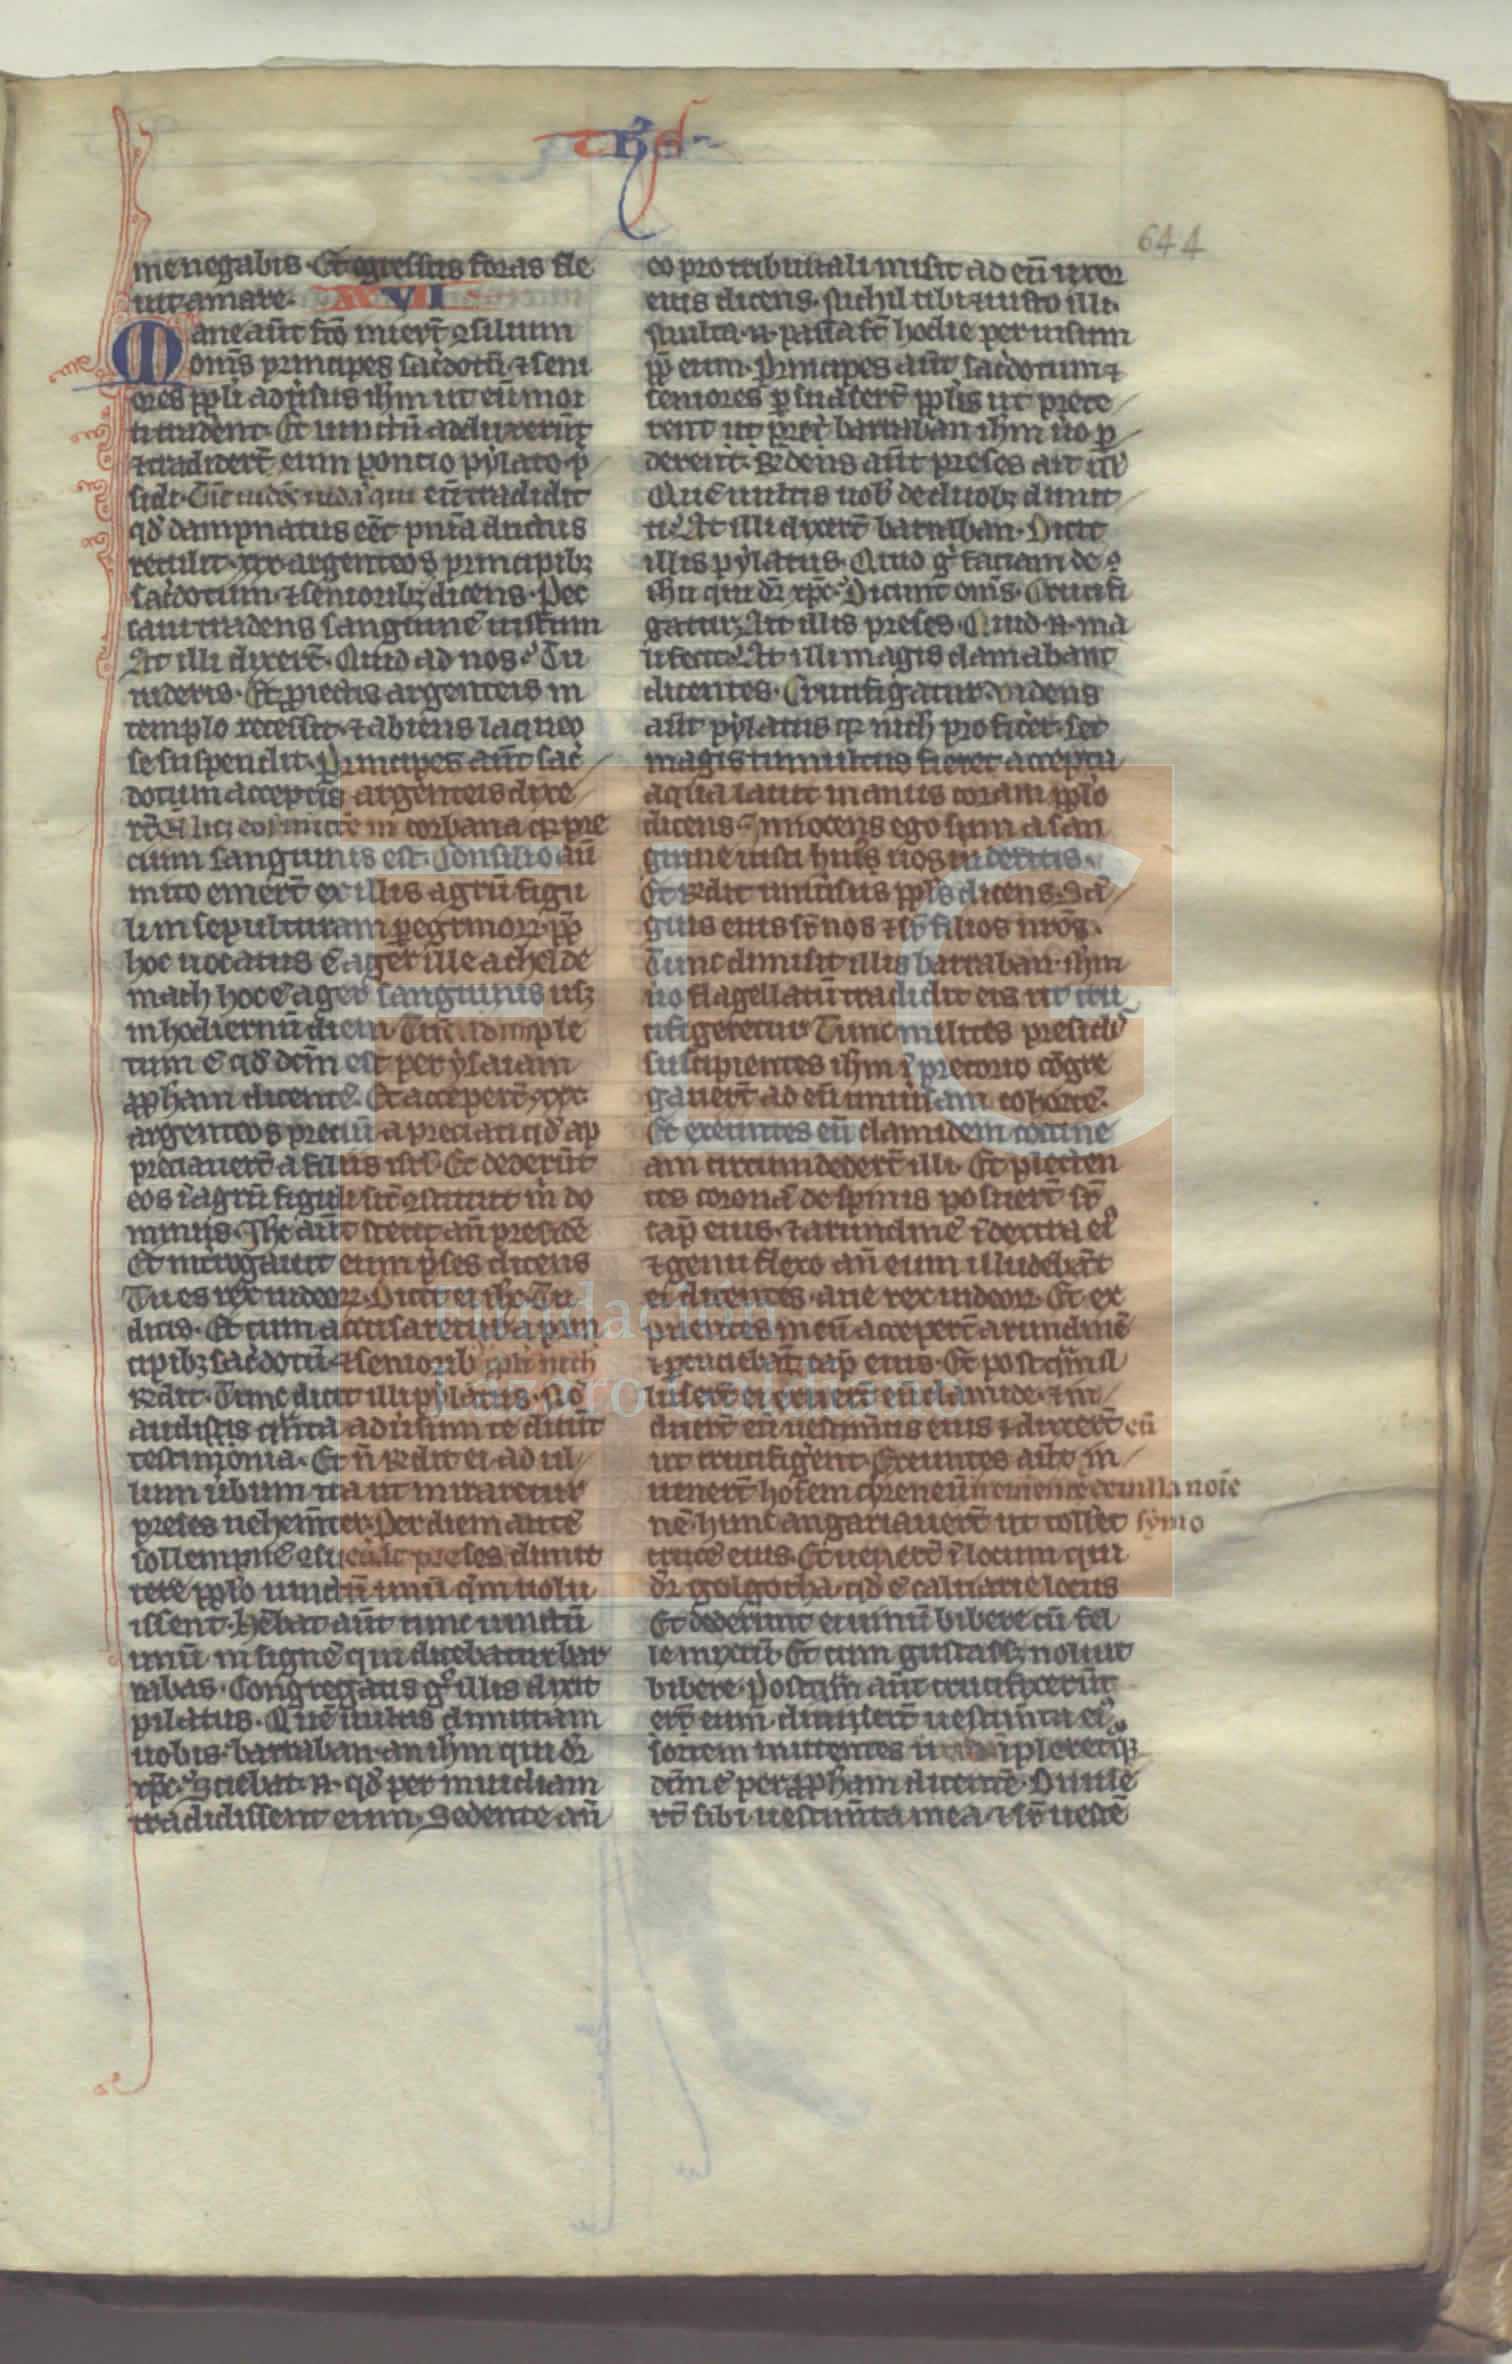 ThS
644
me negabis. Et egressus foras fle
uit amare. XXVII
Mane aut̄ fc̄o inier̄t ɔsilium
om̄s principes sac̉dotū ⁊ seni
ores pp̄li adủsus ih̄m ut eū mor
ti tradent. Et uinctū adduxerūt
⁊ tradider̄t eum poncio pylato p̉
sidi. Tūc uidēs iudas qui eū tradidit
qd̉ dampnatus eēt pnīa ductus
retulit .xxx. argenteos principibꝫ
sac̉dotum ⁊ senioribꝫ dicens. Pec
caui tradens sanguinē iustum
At illi dixer̄t. Quid ad nos? Tu
uideris. Et ꝓiectis argenteis in
templo recessit. ⁊ abiens laqueo
se suspendit. Principes aut̄ sac̉
dotum acceptis argenteis dixe
rt̄. Nō licꝫ eos mittē in corbanā qꝛ pre
cium sanguinis est. Consilio aū
inito emer̄t ex illis agrū figu
li in sepulturam pegrinoꝝ. pp̄
hoc uocatus ē ager ille achelde
mach hoc ē ager sanguinis usqꝫ
in hodiernū diem. Tūc adimple
tum ē qd̉ dcm̄ est per ysaiam
ꝓpham dicentē. Et acceper̄t .xxx.
argenteos preciū apreciati qd̉ ap
preciauer̄t a filiis isr̄l. Et dederūt
eos ī agrū figuli sic̄ ɔstituit m̄ do
minus. Ihc̄ aut̄ stetit an̄ presidē
Et int̉rogauit eum p̉ses dicens
Tu es rex iudeoꝝ. Dicit ei ihc̄. Tu
dicis. Et cum accusaretur a prin
cipibꝫ sac̉dotū ⁊ seniorib pp̄li nich̄
Rn̄dit. Tunc dicit illi pylatus. Nō
audistis qn̄ta adủsum te dicūt
testimonia. Et n̄ Rn̄dit ei ad ul
lum ủbum ita ut miraretur
preses uehem̄ter. Per diem autē
sollempnē ɔsueủat preses dimit
tere pp̄lo uinctū unū qm̄ uolu
issent. Hēbat aut̄ tunc uinctū
unū insignē qui dicebatur bar
rabas. Congregatis gͦ illis dixit
pilatus. Quē uultis dimittam
uobis. barraban. an ih̄m qui dr̄
xp̄c? Sciebat n̄. qd̉ per inuidiam
tradidissent eum. Sedente aū
eo pro tribunali misit ad eū uxor
eius dicens. Nichil tibi ⁊ iusto illi.
Multa n̄. passa sū hodie per uisum
pp̄ eum. Principes aut̄ sac̉dotum ⁊
seniores psuaser̄t pp̄lis ut pete
rent ut petēt barraban ih̄m uͦo p
derent. Rn̄dens aut̄ preses ait ill̄
Quē uultis uob̄ de duobꝫ dimit
ti? At illi dixer̄t barraban. Dicit
illis pylatus. Quid gͦ faciam de
ih̄u qui dr̄ xp̄c? Dicunt om̄s. Crucifi
gatur. Ait illis preses. Quid n̄. ma
li fecit? At illi magis clamabant
dicentes. Crucifigatur. Videns
aut̄ pylatus qꝛ nich̄ proficēt. set
magis tumultus fieret accepta
aqua lauit manus coram pp̄lo
dicens. Innocens ego sum a san
guine iusti huiꝰ uos uideritis.
Et Rn̄dit uniủsus pp̄ls dicens. Sā
guis eius sr̄ nos ⁊ sr̄ filios nr̄os.
Tunc dimisit illis barraban. ih̄m
uͦo flagellatū tradidit eis ut cru
cifigeretur. Tunc milites presidis
suscipientes ih̄m ī pretorio cōgre
gauer̄t ad eū uniủsam cohortē.
Et exeuntes eū clamidem coccine
am circumdeder̄t illi. Et plecten
tes coronā de spinis posuer̄t sr̄
cap̄ eius. ⁊ arundinē ī dextra eiꝰ
⁊ genu flexo an̄ eum illudebāt
ei dicentes. aue rex iudeoꝝ. Et ex
puentes in eū acceper̄t arundinē
⁊ pcuciebāt cap̄ eius. Et postqm̄ il
luser̄t ei exuer̄t eū clamide. ⁊ in
duer̄t eū uestim̄tis eius ⁊ duxer̄t eū
ut crucifigēnt. Exeuntes aut̄ in
uener̄t hoīem cyreneū uenientē ex uilla noīe
nē. hunc angariauer̄t ut tollēt symo
crucē eius. Et uener̄t ī locum qui
dr̄ golgotha. qd̉ ē caluarie locus
Et dederunt ei uinū bibere cū fel
le mixtū. Et cum gustassꝫ noluit
bibere. Postqm̄ aut̄ crucifixerūt
eum. diuiser̄t uestim̄ta eiꝰ
sortem mittentes ut adimpleretur qd̉
dcm̄ ē per ꝓpham dicentē. Diuise
rt̄ sibi uestim̄ta mea ⁊ sr̄ uestē
FLG
Fundación
Lázaro Galdiano